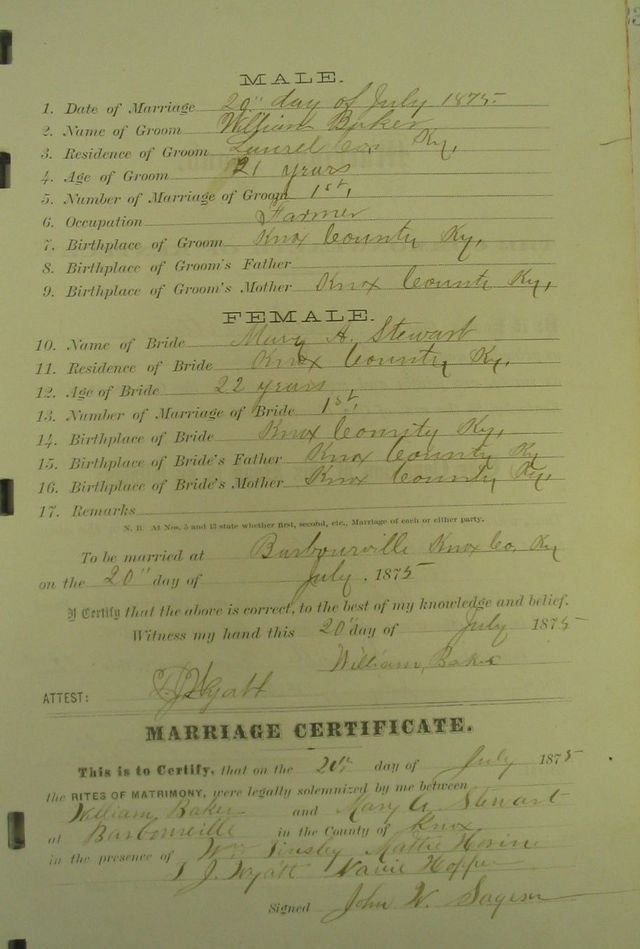 MALE.
1. Date of Marriage 20" day of July 1875
2. Name of Groom William Baker
3. Residence of Groom Laurel Co. Ky,
4. Age of Groom 21 years
5. Number of Marriage of Groom 1st,
6. Occupation Farmer
7. Birthplace of Groom Knox County Ky,
8. Birthplace of Groom's Father
9. Birthplace of Groom's Mother Knox County Ky,
FEMALE.
10. Name of Bride Mary A. Stewart
11. Residence of Bride Knox County Ky,
12. Age of Bride 22 years
13. Number of Marriage of Bride 1st,
14. Birthplace of Bride Knox County Ky,
15. Birthplace of Bride's Father Knox County Ky
16. Birthplace of Bride's Mother Knox County Ky,
17. Remarks
N. B. At Nos. 5 and 13 state whether first, second, etc., Marriage of each or either party.
To be married at Barbourville Knox Co, Ky
on the 20" day of July, 1875
I Certify that the above is correct, to the best of my knowledge and belief.
Witness my hand this 20" day of July 1875
William Baker
ATTEST: J Wyatt
MARRIAGE CERTIFICATE.
This is to Certify, that on the 20th day of July 1875
the RITES OF MATRIMONY, were legally solemnized by me between
William Baker and Mary A Stewart
at Barbourville in the County of Knox
in the presence of Wm Tinsley Mattie
J. Wyatt Hopper
Signed John W.